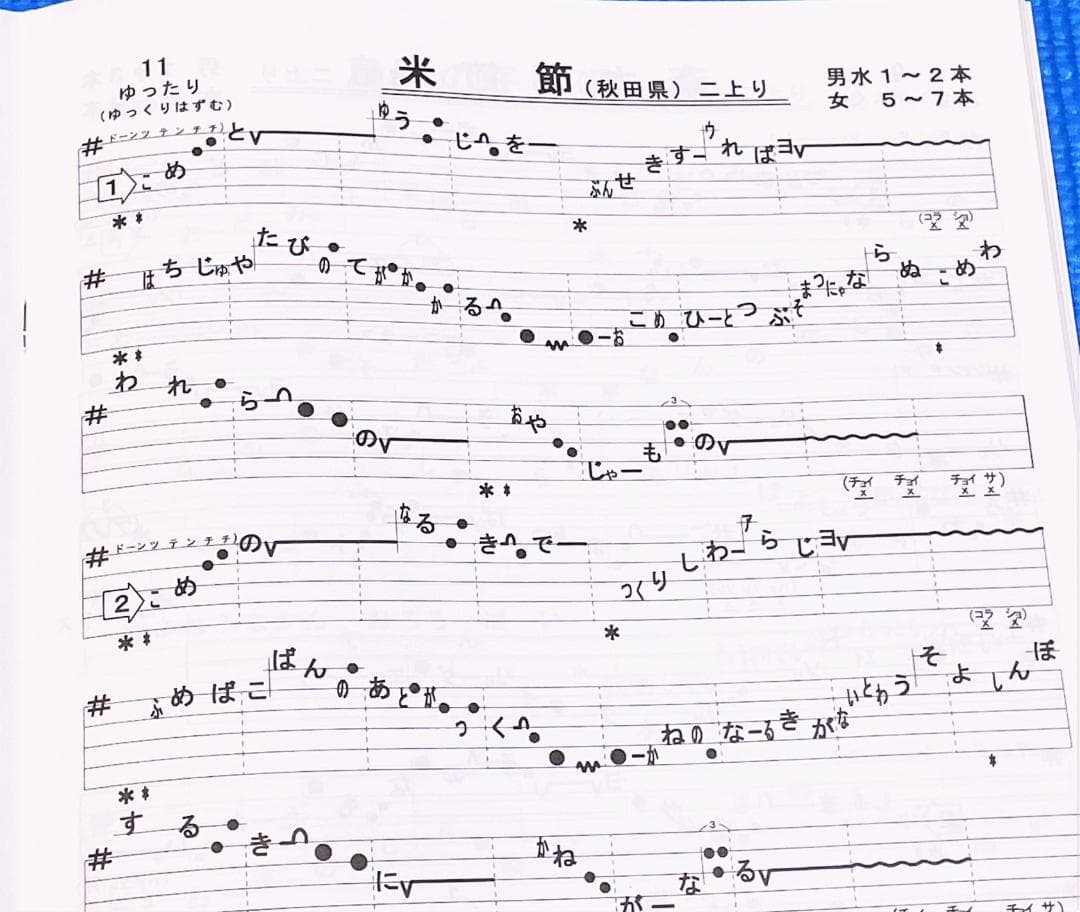 11
ゆったり
(ゆっくりはずむ)
米節(秋田県)二上り
男水1〜2本
女 5〜7本
#ドーンツテンチチ)
1 こめとゆうじをーぶんせきすーウればヨ
(コラ ショ)
#はちじゅやたびのてがかかるーおこめひーとつぶそまつにゃならぬこめわ
#われらのおやじゃーも3の
(チョイ チョイ チョイ サ)
#ドーンツテンチチ)
2 こめのなるきでーつくりしわーアらじヨ
(コラ ショ)
#ふめばこばんのあとがつくーかねのなーるきがないとわうそよしんぼ
#するきにかねがーな3る
(チョイ チョイ サ)